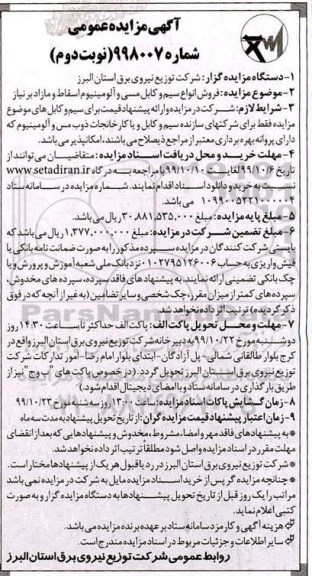 آگهی مزایده عمومی
شماره ۹۹۸۰۰۷ (نوبت دوم)
۱- دستگاه مزایده گزار: شرکت توزیع نیروی برق استان البرز
۲- موضوع مزایده: فروش انواع سیم و کابل مسی و آلومینیوم اسقاط و مازاد بر نیاز
۳- شرایط لازم: شرکت در مزایده و ارائه پیشنهاد قیمت برای سیم و کابل های موضوع
مزایده فقط برای شرکتهای سازنده سیم و کابل و یا کارخانجات ذوب مس و آلومینیوم که
دارای پروانه بهره برداری معتبر از مراجع ذیصلاح می باشند، امکانپذیر می باشد.
۴- مهلت خرید و محل دریافت اسناد مزایده: متقاضیان می توانند از
تاریخ ۹۹/۱۰/۶ لغایت ۹۹/۱۰/۱۰ با مراجعه به درگاه www.setadiran.ir
نسبت به خرید و دانلود اسناد اقدام نمایند. شماره مزایده در سامانه ستاد
۱۰۹۹۰۰۵۲۲۱۰۰۰۰۰۴ می باشد.
۵- مبلغ پایه مزایده: مبلغ ۳۰,۸۸۱,۵۳۵,۰۰۰ ریال می باشد.
۶- مبلغ تضمین شرکت در مزایده: مبلغ ۱,۳۷۷,۰۰۰,۰۰۰ ریال می باشد که
بایستی شرکت کنندگان در مزایده سپرده مذکور را به صورت ضمانت نامه بانکی یا
فیش واریزی به حساب ۰۱۰۲۷۹۵۱۲۶۰۰۶ نزد بانک ملی شعبه آموزش و پرورش و یا
چک بانکی تضمینی ارائه نمایند. به پیشنهادهای فاقد سپرده، سپرده های مخدوش،
سپرده های کمتر از میزان مقرر، چک شخصی و سایر تضامین (به غیر از آنچه که در فوق
ذکر گردیده) ترتیب اثر داده نخواهد شد.
۷- مهلت و محل تحویل پاکت الف: پاکت الف حداکثر تا ساعت ۱۴:۳۰ روز
دوشنبه مورخ ۹۹/۱۰/۲۲ به دبیرخانه شرکت توزیع نیروی برق استان البرز واقع در
کرج بلوار طالقانی شمالی- پل آزادگان- ابتدای بلوار امام رضا- امور تدارکات شرکت
توزیع نیروی برق استان البرز تحویل گردد. (در خصوص پاکت های "ب و ج" نیز از
طریق بارگذاری در سامانه ستاد و با امضای دیجیتال اقدام شود.)
۸- زمان گشایش پاکات اسناد مزایده: ساعت ۱۳:۰۰ روز سه شنبه مورخ ۹۹/۱۰/۲۳
۹- زمان اعتبار پیشنهاد قیمت مزایده گران: از تاریخ تحویل پیشنهاد به مدت سه ماه
* به پیشنهادهای فاقد مهر و امضاء، مشروط، مخدوش و پیشنهادهایی که بعد از انقضای
مهلت مقرر در اسناد مزایده واصل شود مطلقاً ترتیب اثر داده نخواهد شد.
* شرکت توزیع نیروی برق استان البرز در رد یا قبول هر یک از پیشنهادها مختار است.
* چنانچه مزایده گر پس از خرید اسناد مزایده مایل به شرکت در مزایده نمی باشد
مراتب را یک روز قبل از تاریخ تحویل پیشنهادها به دستگاه مزایده گزار و به صورت
کتبی اعلام نماید.
* هزینه آگهی و کارمزد سامانه ستاد بر عهده برنده مزایده می باشد.
* سایر اطلاعات و جزئیات مربوط در اسناد مزایده مندرج است.
روابط عمومی شرکت توزیع نیروی برق استان البرز